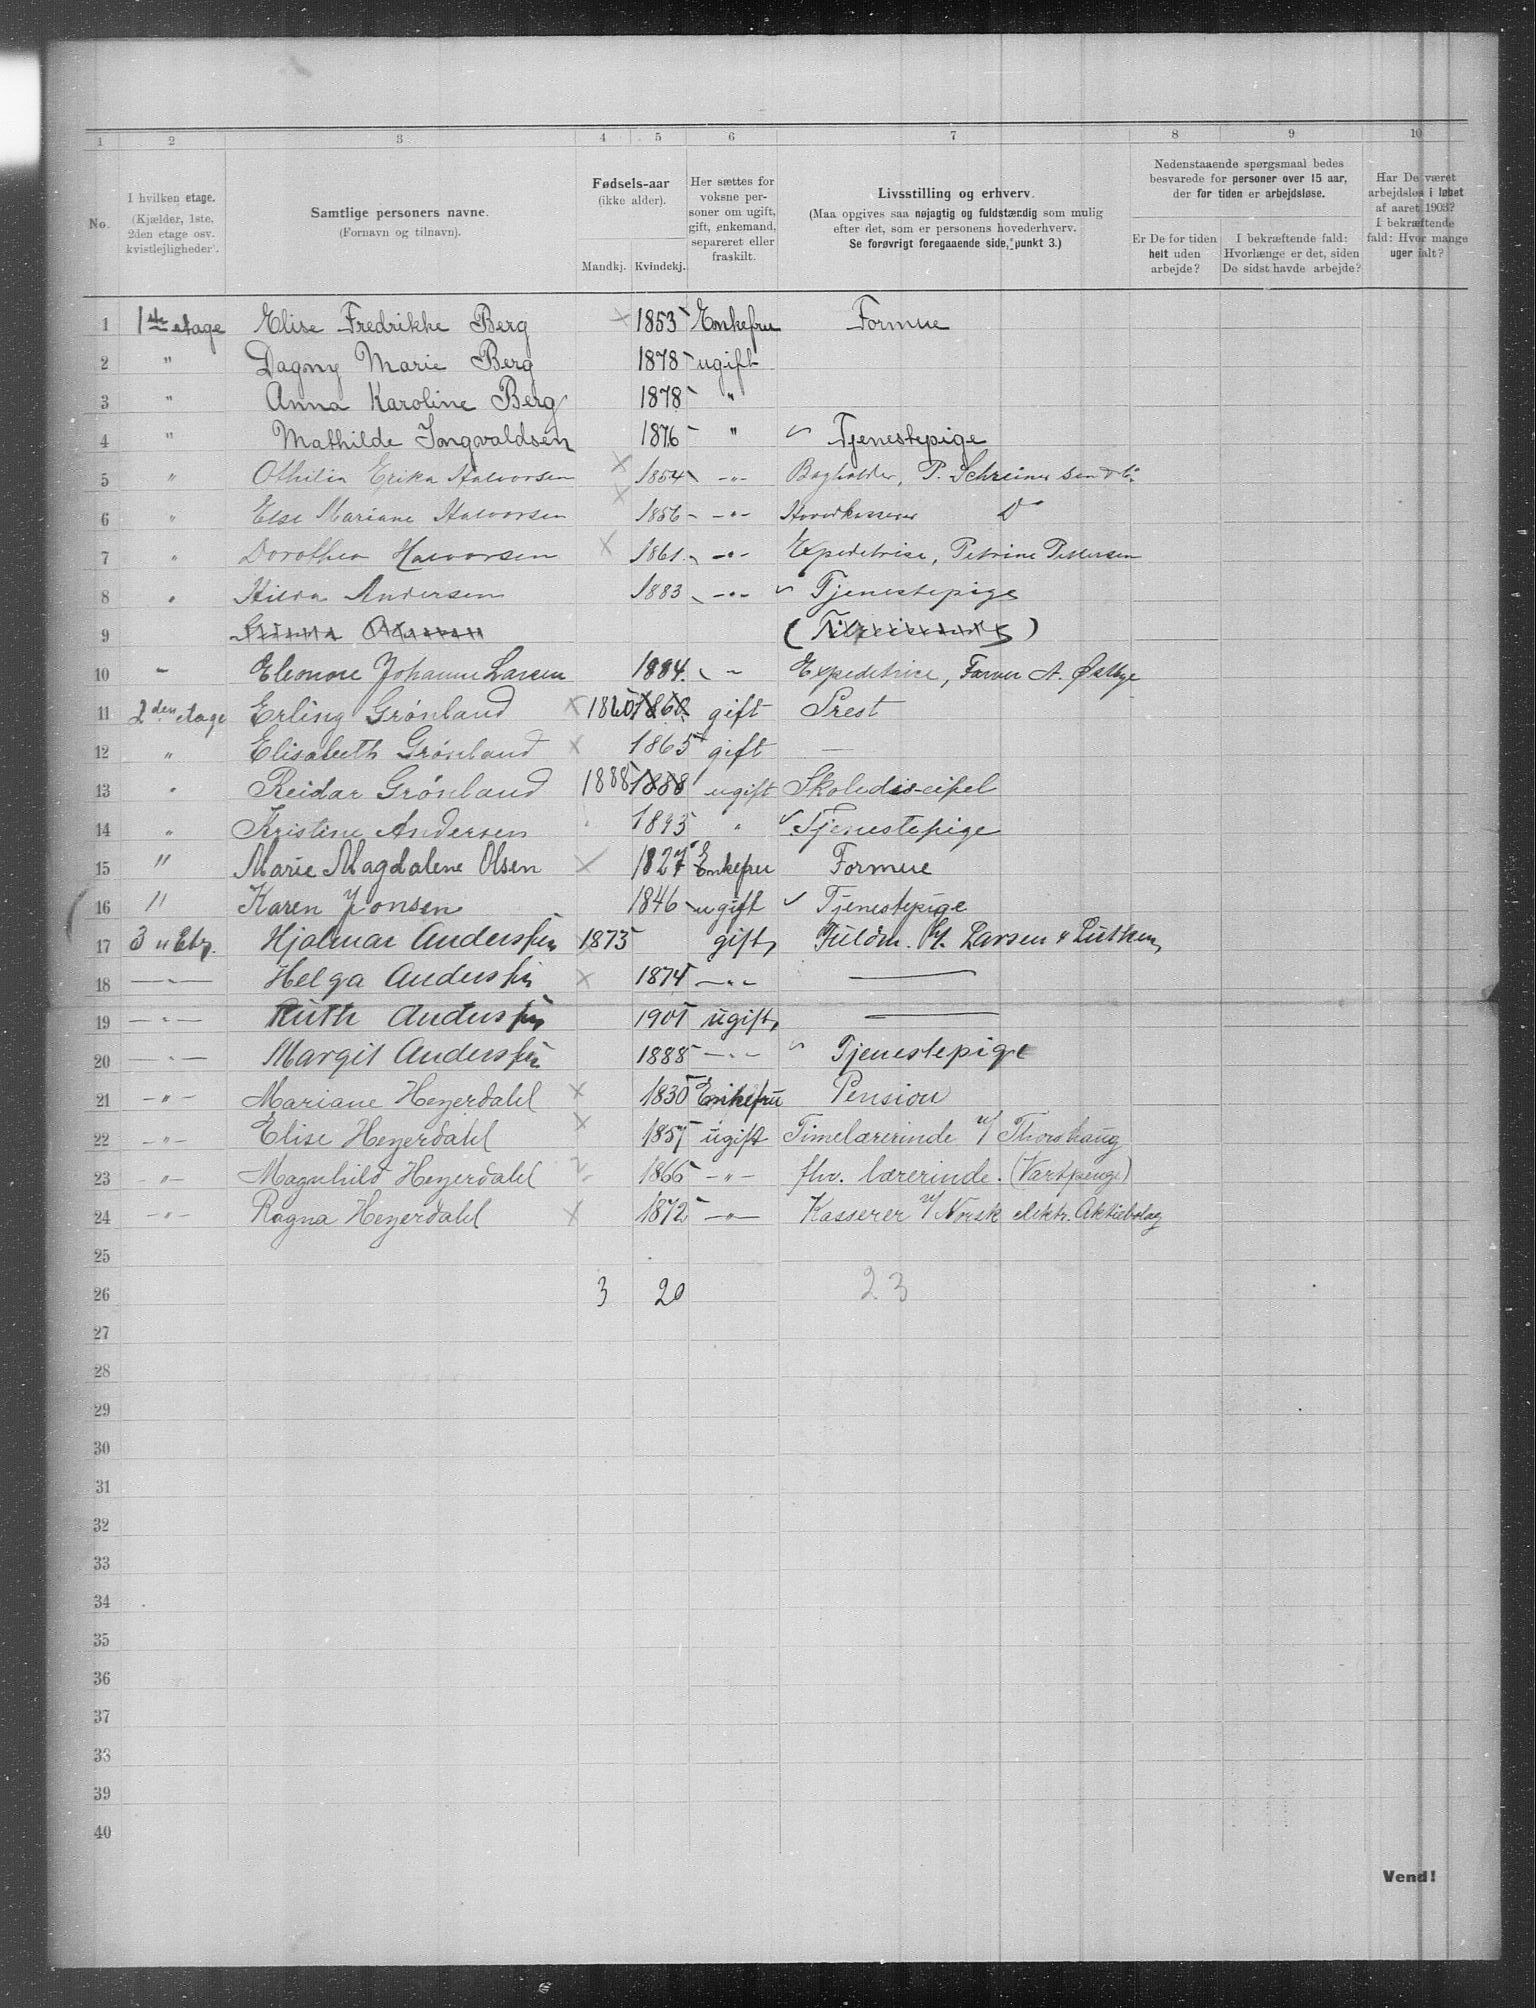 1 2 3 4 5 6 7 8 9 10
No.
I hvilken etage.
(Kjælder, 1ste, 2den etage osv. kvistlejligheder).
Samtlige personers navne.
(Fornavn og tilnavn).
Fødsels-aar
(ikke alder).
Mandkj. Kvindekj.
Her sættes for voksne personer om ugift, gift, enkemand, separeret eller fraskilt.
Livsstilling og erhverv.
(Maa opgives saa nøjagtig og fuldstændig som mulig efter det, som er personens hovederhverv.
Se forøvrigt foregaaende side, punkt 3.)
Nedenstaaende spørgsmaal bedes besvarede for personer over 15 aar, der for tiden er arbejdsløse.
Er De for tiden helt uden arbejde?
I bekræftende fald: Hvorlænge er det, siden De sidst havde arbejde?
Har De været arbejdsløs i løbet af aaret 1903? I bekræftende fald: Hvor mange uger ialt?
1 1ste etage Elise Fredrikke Berg × 1853 Enkefru Formue
2 " Dagny Marie Berg 1878 ugift
3 " Anna Karoline Berg 1878 "
4 " Mathilde Ingvaldsen 1876 " Tjenestepige
5 " Othilia Erika Halvorsen × 1854 -"- Bogholder, P. Schreiner sen & Co
6 " Else Mariane Halvorsen × 1856 -"- Hovedkasserer Do
7 " Dorothea Halvorsen × 1861 -"- Expeditrise, Petrine Pettersen
8 " Hilda Andersen 1883 -"- Tjenestepige
9
10 " Eleonore Johanne Larsen 1884 " Expeditrice, Farver A. Østbye
11 2den etage Erling Grönland × 1860 1860 gift Prest
12 " Elisabeth Grönland × 1865 gift —
13 " Reidar Grönland 1888 1888 ugift Skolediscipel
14 " Kristine Andersen " "  Tjenestepige
15 " Marie Magdalene Olsen × 1827 Enkefru Formue
16 " Karen Jonsen 1846 ugift Tjenestepige
17 3 " Etg. Hjalmar Anderssen 1873 gift, Fuldm. Larsen & Lütken,
18 -"- Helga Anderssen × 1874 -"- —
19 -"- Ruth Anderssen 1901 ugift, —
20 -"- Margit Anderssen 1888 -"- Tjenestepige
21 -"- Mariane Heyerdahl × 1830 Enkefru Pension
22 -"- Elise Heyerdahl × 1857 ugift Timelærerinde v/ Thorshaug
23 -"- Magnhild Heyerdahl 1866 -"- fhv. lærerinde. (Vartpenge)
24 -"- Ragna Heyerdahl × 1872 -"- Kasserer v/ Norsk elektr. Aktiebolag
25
26 3 20 23
27
28
29
30
31
32
33
34
35
36
37
38
39
40
Vend!